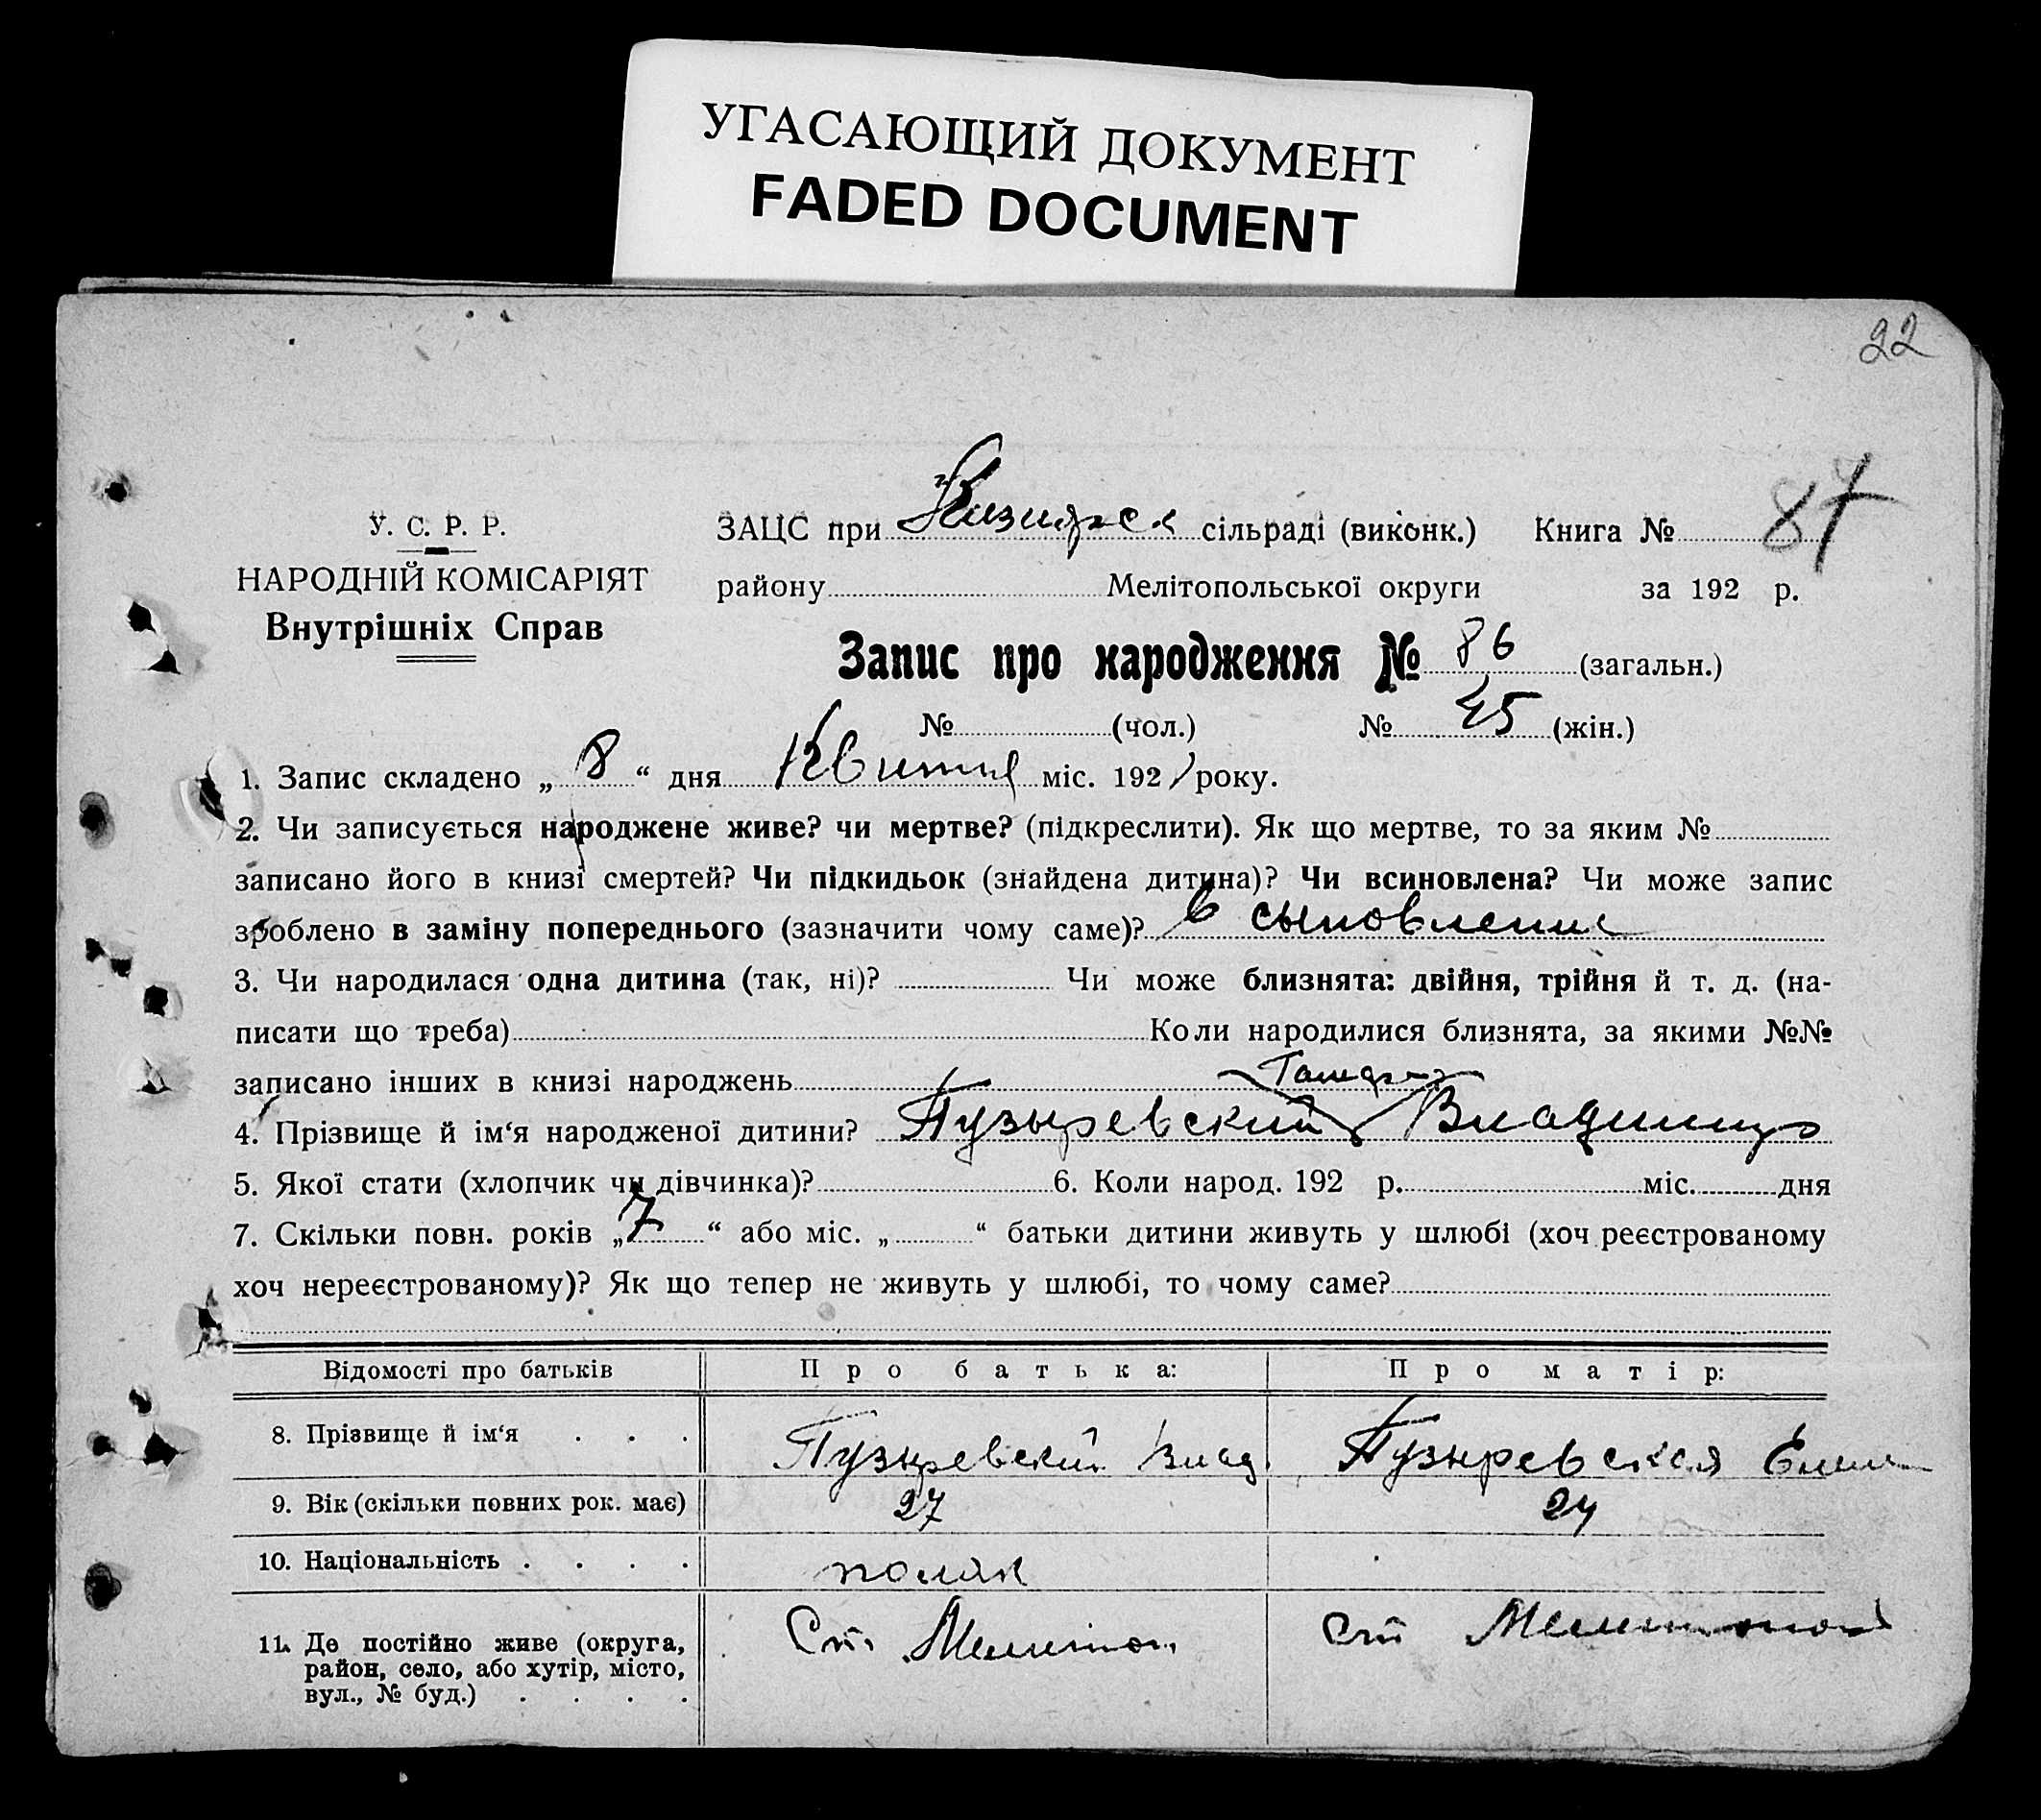 УГАСАЮЩИЙ ДОКУМЕНТ
FADED DOCUMENT
22
У. С. Р. Р.
НАРОДНІЙ КОМІСАРІЯТ
Внутрішніх Справ
ЗАЦС при Кизиярск сільраді (виконк.) Книга № 87
району Мелітопольської округи за 192 р.
Запис про народження № 86 (загальн.)
№ (чол.) № 45 (жін.)
1. Запис складено „ 8 “ дня Квитня міс. 192 року.
2. Чи записується народжене живе? чи мертве? (підкреслити). Як що мертве, то за яким №
записано його в книзі смертей? Чи підкидьок (знайдена дитина)? Чи всиновлена? Чи може запис
зроблено в заміну попереднього (зазначити чому саме)? в сыновление
3. Чи народилася одна дитина (так, ні)? Чи може близнята: двійня, трійня й т. д. (на-
писати що треба) Коли народилися близнята, за якими №№
записано інших в книзі народжень
4. Прізвище й ім‘я народженої дитини? Пузыревский Владимир
5. Якої стати (хлопчик чи дівчинка)? 6. Коли народ. 192 р. міс. дня
7. Скільки повн. років „ 7 “ або міс. „ “ батьки дитини живуть у шлюбі (хоч реєстрованому
хоч нереєстрованому)? Як що тепер не живуть у шлюбі, то чому саме?
Відомості про батьків Про батька: Про матір:
8. Прізвище й ім‘я . . . Пузыревский Влад Пузыревская Елен
9. Вік (скільки повних рок. має) 27 24
10. Національність . . . . поляк
11. Де постійно живе (округа, Ст. Мелитоп Ст Мелитополь
район, село, або хутір, місто,
вул., № буд.) . . . .